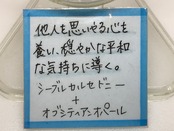 他人を思いやる心を
養い、穏やかな平和
な気持ちに導く。
シーブルカルセドニー
+
オブシディアンオパール